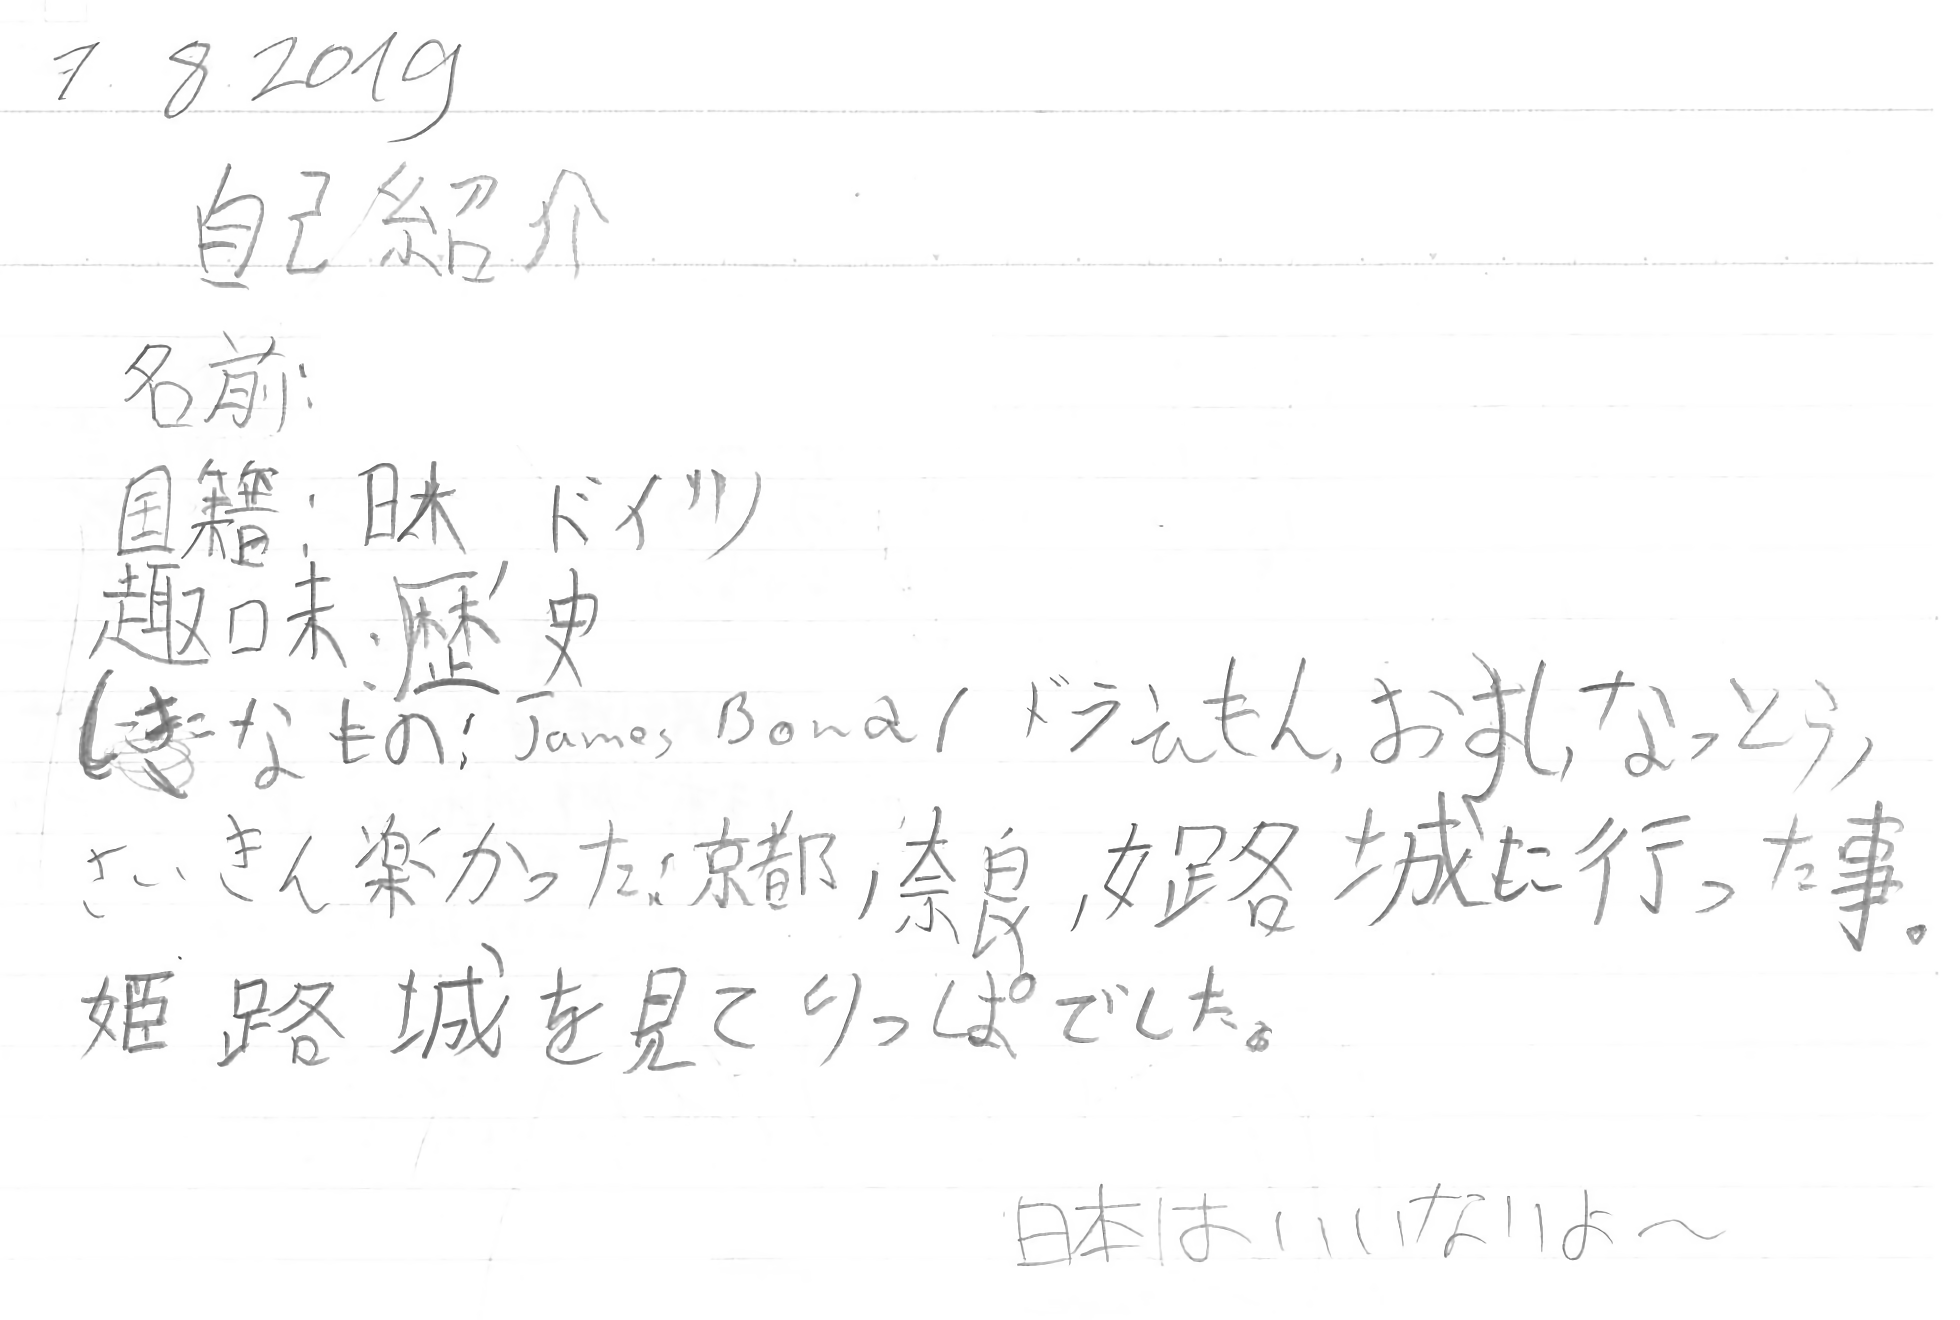 7.8.2019
自己紹介
名前:
国籍: 日本 ドイツ
趣味: 歴史
すきなもの: James Bond, ドラえもん, おすし, なっとう,
さいきん楽かった: 京都, 奈良, 姫路城に行った事。
姫路城を見てりっぱでした。
日本はいいないよ～